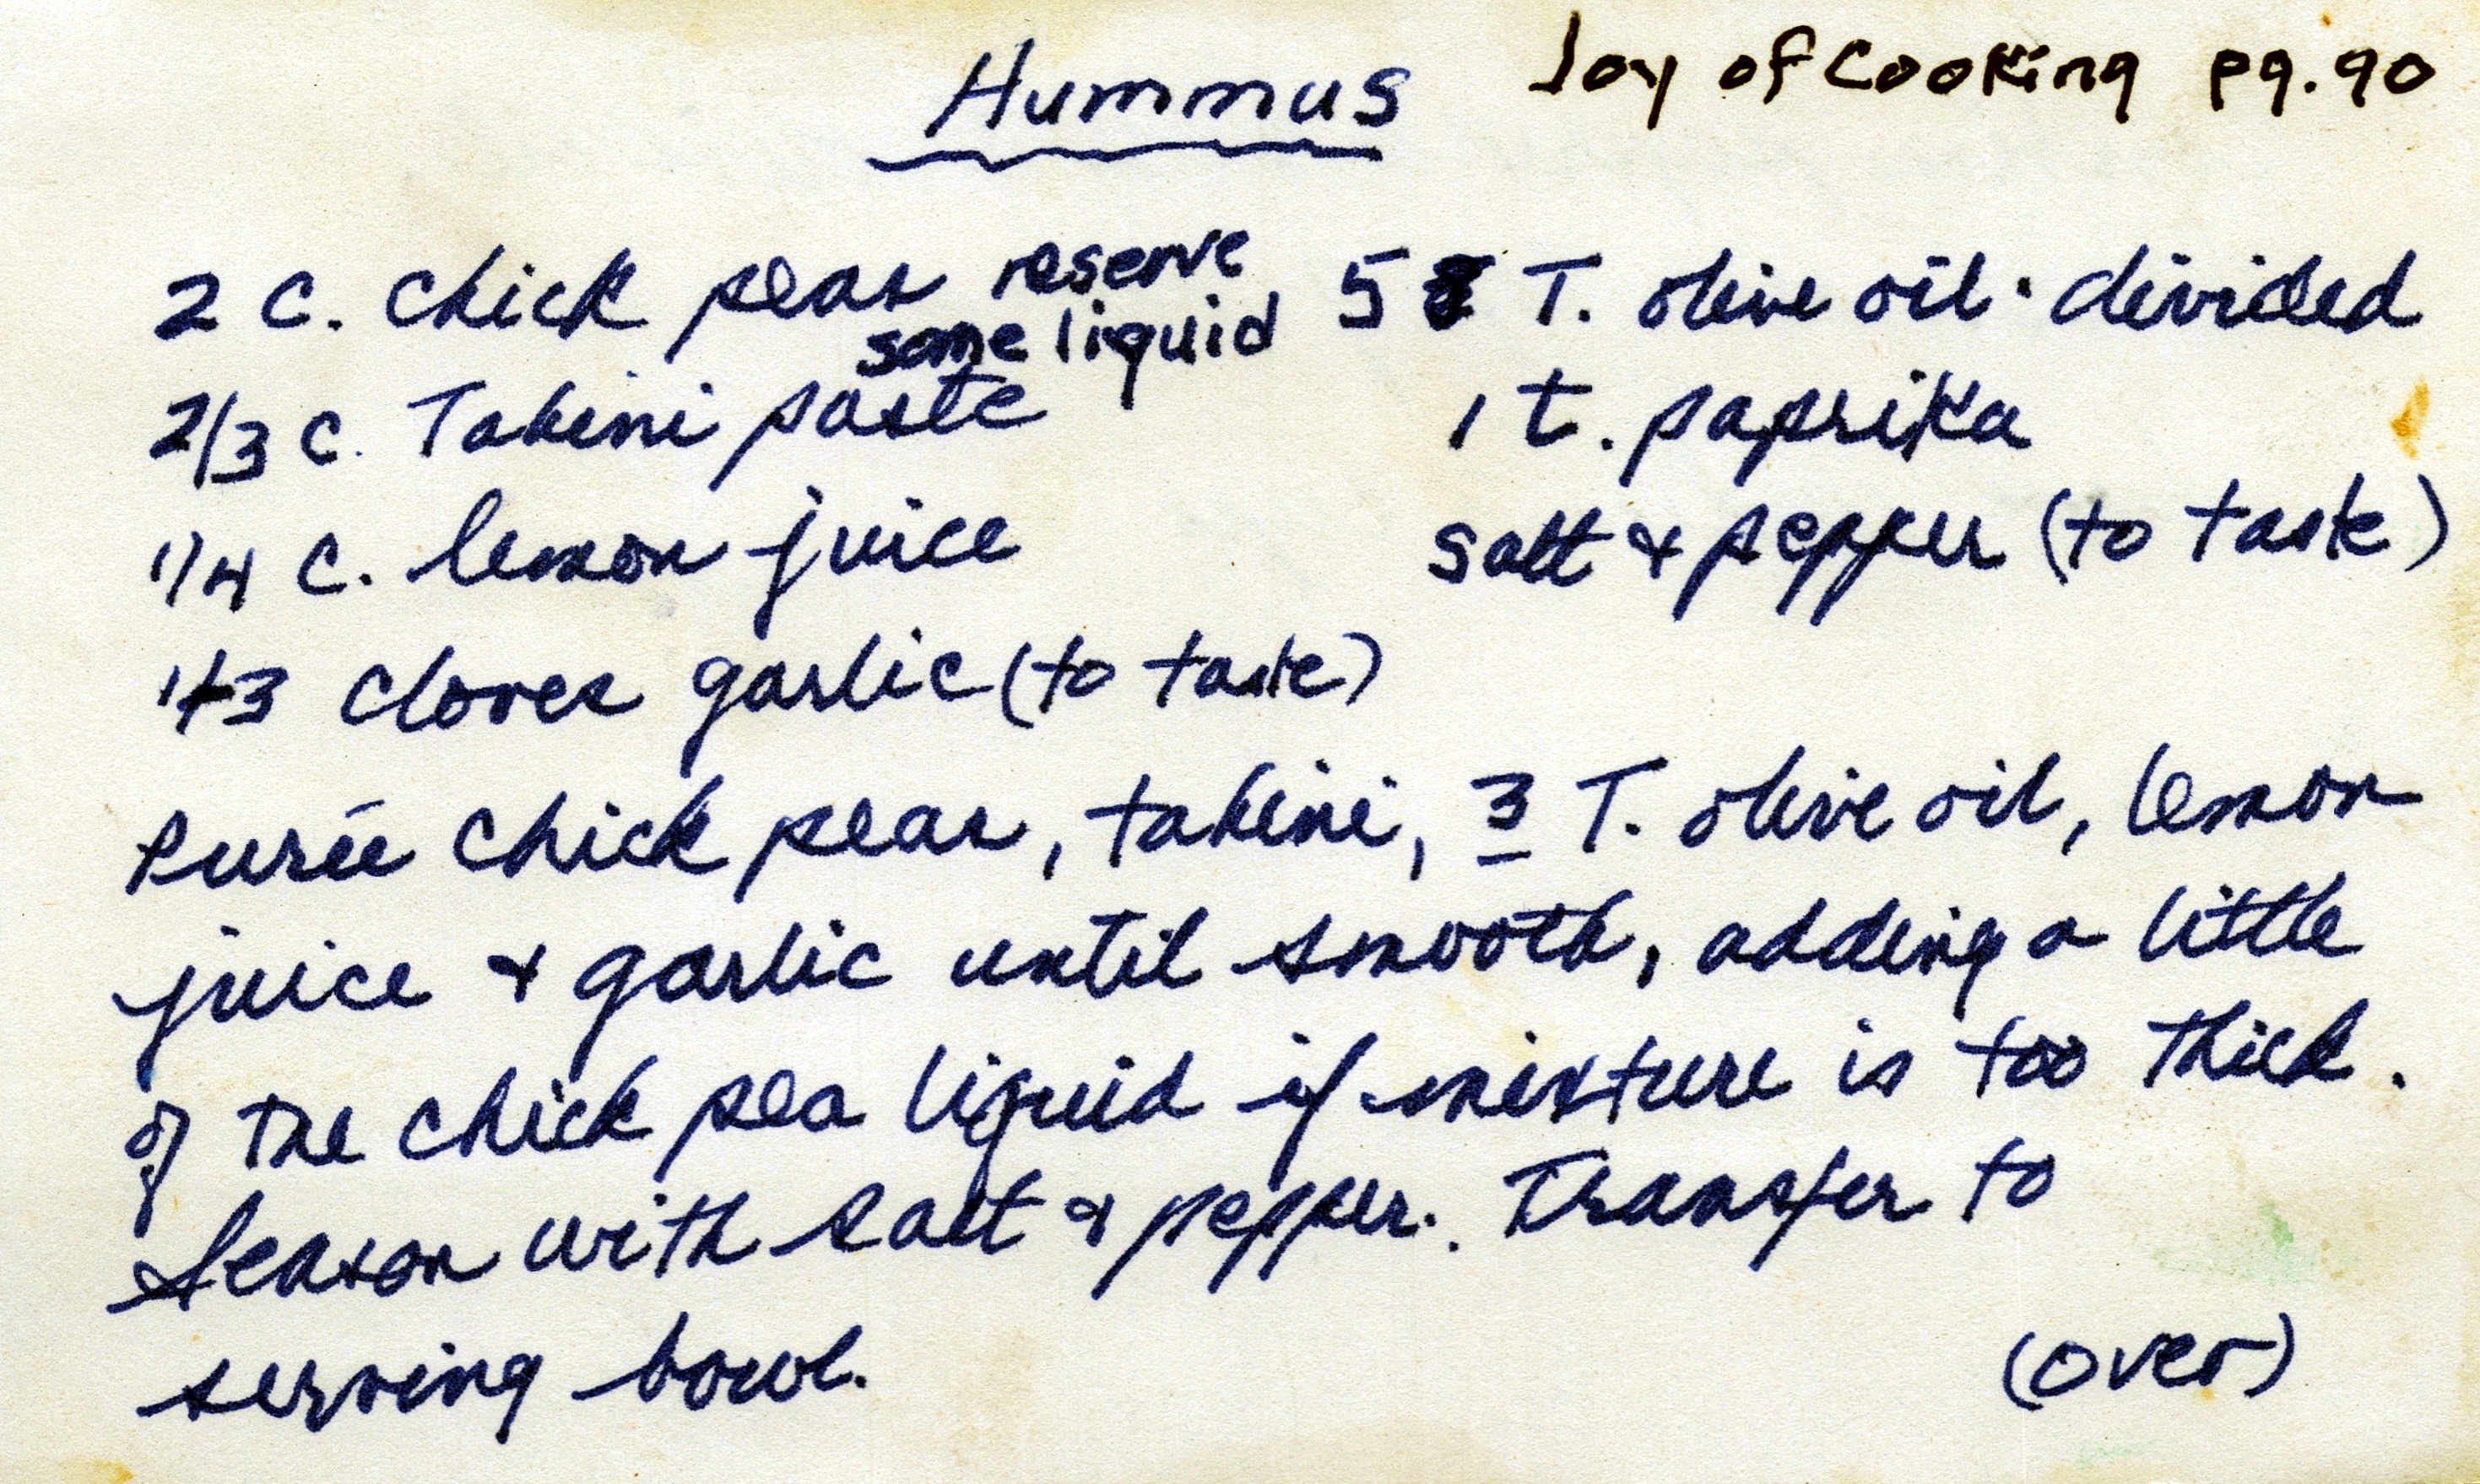 Hummus
Joy of Cooking pg. 90
2 C. chick peas reserve some liquid
5 T. olive oil · divided
2/3 C. Tahini paste
1 t. paprika
1/4 C. lemon juice
salt & pepper (to taste)
cloves garlic (to taste)
Purée chick peas, tahini, 3 T. olive oil, lemon
juice & garlic until smooth, adding a little
of the chick pea liquid if mixture is too thick.
Season with salt & pepper. Transfer to
serving bowl.
(over)